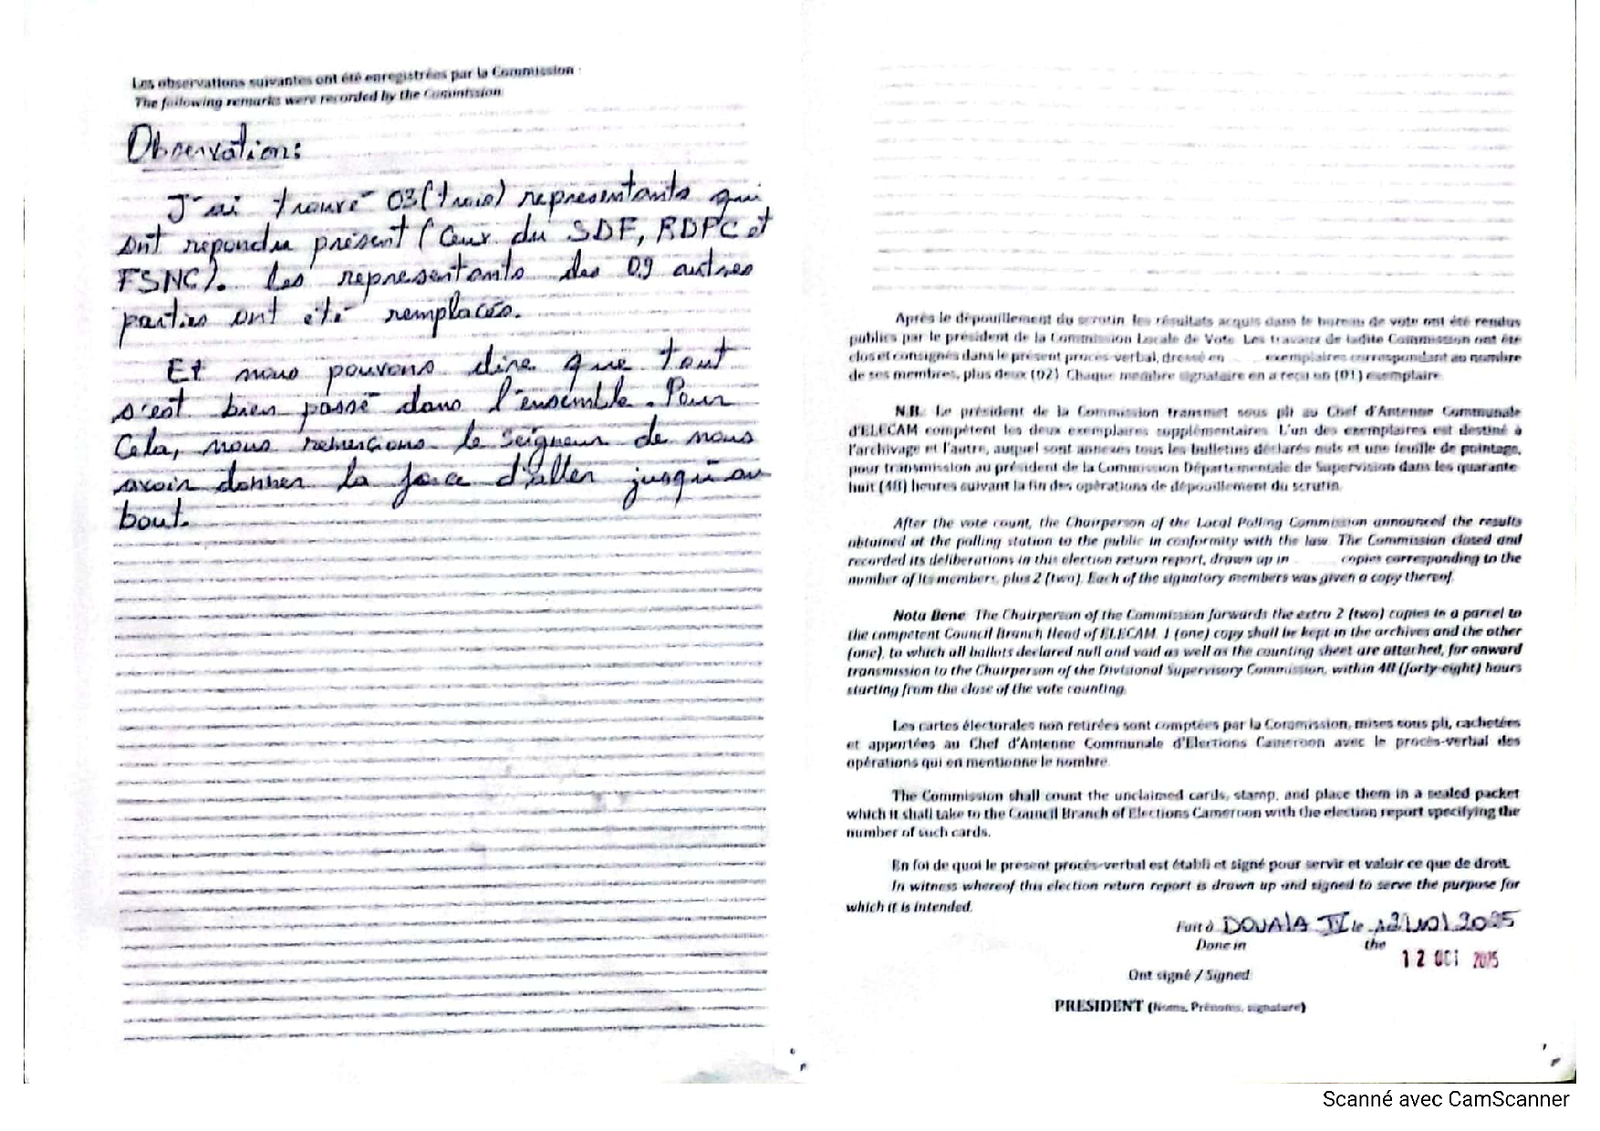 Les observations suivantes ont été enregistrées par la Commission :
The following remarks were recorded by the Commission
Observation:
J'ai trouvé 03 (trois) representants qui
ont repondu présent (Ceux du SDF, RDPC et
FSNC). Les representants des 09 autres
parties ont été remplacés.
Et nous pouvons dire que tout
s'est bien passé dans l'ensemble. Pour
Cela, nous remercions le Seigneur de nous
avoir donner la force d'aller jusqu'au
bout.
Après le dépouillement du scrutin, les résultats acquis dans le bureau de vote ont été rendus
publics par le président de la Commission Locale de Vote. Les travaux de ladite Commission ont été
clos et consignés dans le présent procès-verbal, dressé en exemplaires correspondant au nombre
de ses membres, plus deux (02). Chaque membre signataire en a reçu un (01) exemplaire.
N.B. Le président de la Commission transmet sous pli au Chef d'Antenne Communale
d'ELECAM compétent les deux exemplaires supplémentaires. L'un des exemplaires est destiné à
l'archivage et l'autre, auquel sont annexés tous les bulletins déclarés nuls et une feuille de pointage,
pour transmission au président de la Commission Départementale de Supervision dans les quarante
huit (48) heures suivant la fin des opérations de dépouillement du scrutin.
After the vote count, the Chairperson of the Local Polling Commission announced the results
obtained at the polling station to the public in conformity with the law. The Commission closed and
recorded its deliberations in this election return report, drawn up in copies corresponding to the
number of its members, plus 2 (two). Each of the signatory members was given a copy thereof.
Nota Bene The Chairperson of the Commission forwards the extra 2 (two) copies in a parcel to
the competent Council Branch Head of ELECAM. 1 (one) copy shall be kept in the archives and the other
(one), to which all ballots declared null and void as well as the counting sheet are attached, for onward
transmission to the Chairperson of the Divisional Supervisory Commission, within 48 (forty-eight) hours
starting from the close of the vote counting.
Les cartes électorales non retirées sont comptées par la Commission, mises sous pli, cachetées
et apportées au Chef d'Antenne Communale d'Elections Cameroon avec le procès-verbal des
opérations qui en mentionne le nombre.
The Commission shall count the unclaimed cards, stamp, and place them in a sealed packet
which it shall take to the Council Branch of Elections Cameroon with the election report specifying the
number of such cards.
En foi de quoi le présent procès-verbal est établi et signé pour servir et valoir ce que de droit.
In witness whereof this election return report is drawn up and signed to serve the purpose for
which it is intended.
Fait à DOUALA IV le 12/10/2025
Done in the
12 OCT 2025
Ont signé / Signed
PRESIDENT (Noms, Prénoms, signature)
Scanné avec CamScanner